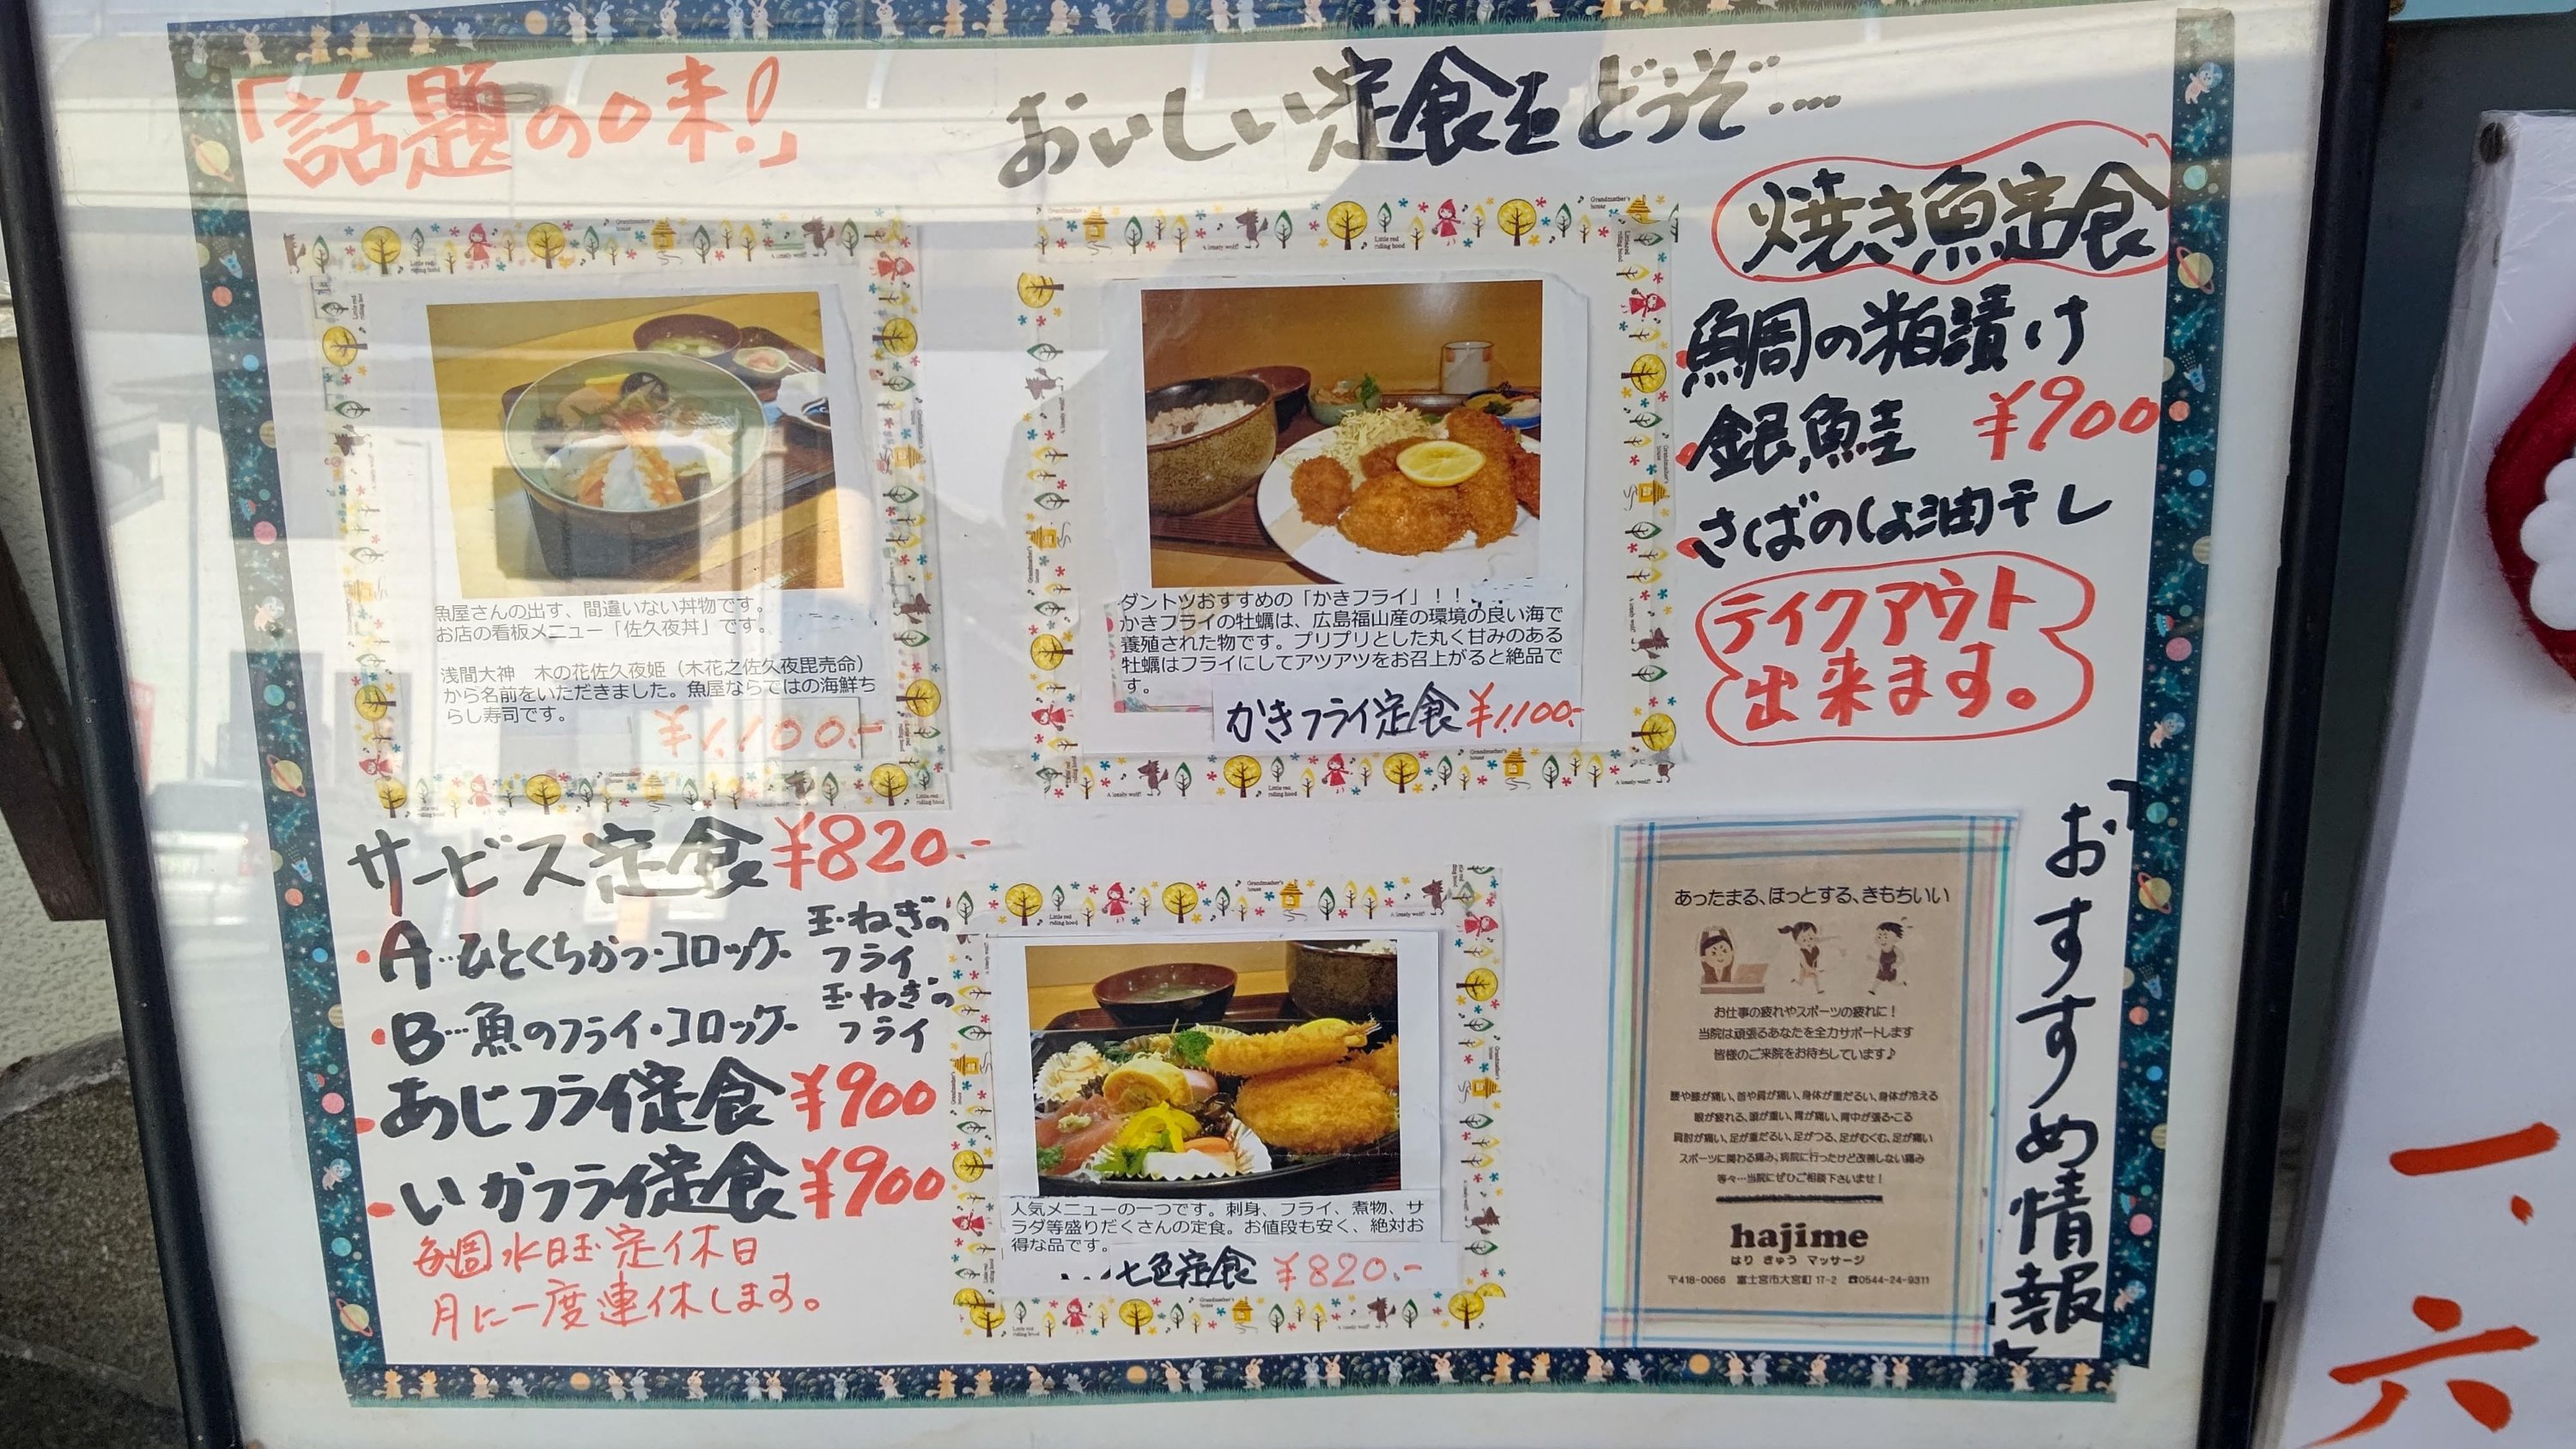 「話題の味!」
おいしい定食をどうぞ....
魚屋さんの出す、間違いない丼物です。
お店の看板メニュー「佐久夜丼」です。
浅間大神　木の花佐久夜姫（木花之佐久夜毘売命）
から名前をいただきました。魚屋ならではの海鮮ち
らし寿司です。
¥1,100.-
ダントツおすすめの「かきフライ」！！
かきフライの牡蠣は、広島福山産の環境の良い海で
養殖された物です。プリプリとした丸く甘みのある
牡蠣はフライにしてアツアツをお召上がると絶品で
す。
かきフライ定食 ¥1,100.-
焼き魚定食
鯛の粕漬け
銀鮭 ¥900
さばのしょ油干し
テイクアウト
出来ます。
サービス定食 ¥820.-
・A…ひとくちかつ・コロッケ・玉ねぎの
フライ
・B…魚のフライ・コロッケ・玉ねぎの
フライ
・あじフライ定食 ¥900
・いかフライ定食 ¥900
毎週水曜定休日
月に一度連休します。
人気メニューの一つです。刺身、フライ、煮物、サ
ラダ等盛りだくさんの定食。お値段も安く、絶対お
得な品です。
....七色定食 ¥820.-
「おすすめ情報」
あったまる、ほっとする、きもちいい
お仕事の疲れやスポーツの疲れに！
当院は頑張るあなたを全力サポートします
皆様のご来院をお待ちしています♪
腰や膝が痛い、首や肩が痛い、身体が重だるい、身体が冷える
眼が疲れる、頭が重い、胃が痛い、背中が張る・こる
肩肘が痛い、足が重だるい、足がつる、足がむくむ、足が痛い
スポーツに関わる痛み、病院に行ったけど改善しない痛み
等々…当院にぜひご相談下さいませ！
hajime
はり きゅう マッサージ
〒418-0066　富士宮市大宮町 17-2　☎0544-24-9311
一・六